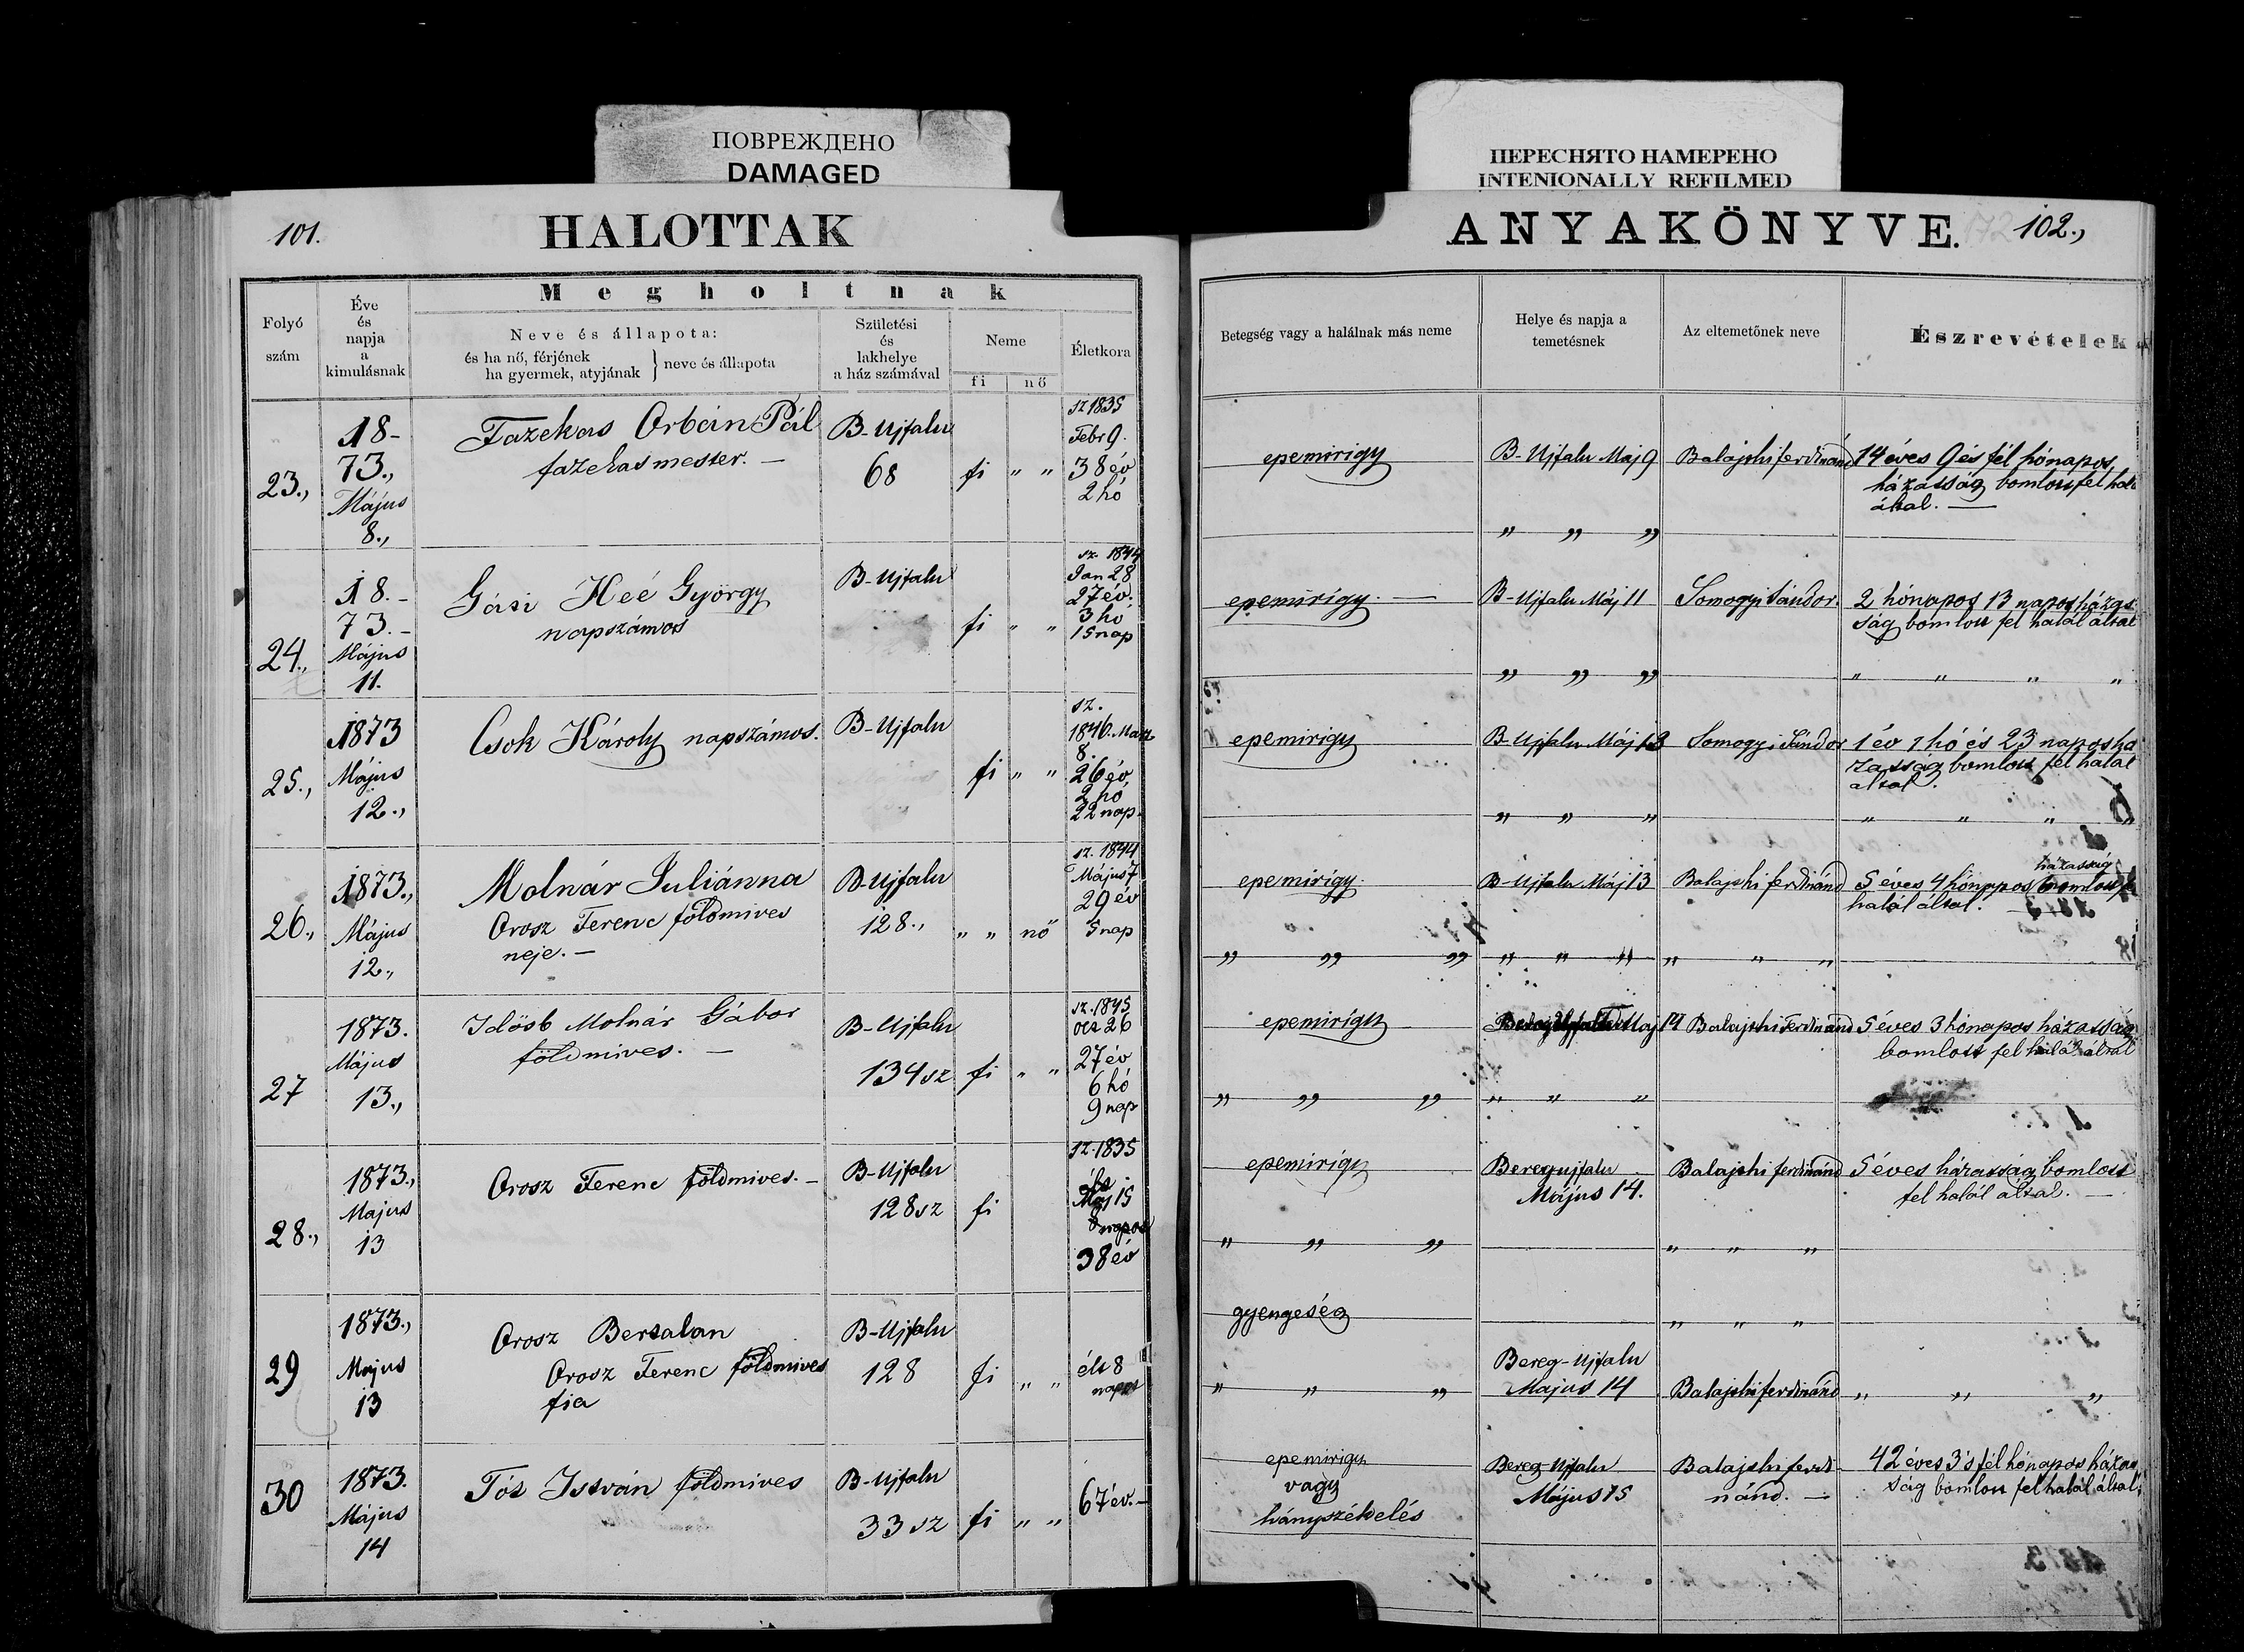 ПОВРЕЖДЕНО
DAMAGED
ПЕРЕСНЯТО НАМЕРЕНО
INTENIONALLY REFILMED
101.
HALOTTAK
ANYAKÖNYVE.
102.,
Folyó
szám
Éve
és
napja
a
kimulásnak
Megholtnak
Neve és állapota:
és ha nő, férjének
ha gyermek, atyjának } neve és állapota
Születési
és
lakhelye
a ház számával
Neme
fi
nő
Életkora
Betegség vagy a halálnak más neme
Helye és napja a
temetésnek
Az eltemetőnek neve
Észrevételek
23.,
18-
73.,
Május
8.,
Fazekas Orbán Pál
fazekasmester. —
B-Ujfalu
68
fi " "
sz 1835
Febr 9.
38 év
2 hó
epemirigy
B-Ujfalu Maj 9
" " "
Balajthi ferdinánd
14 éves 9 és fél hónapos,
házasság bomlott fel
által. —
24.,
18.-
73.-
Május
11.
György
napszámos
B-Ujfalu
fi " "
sz. 1844
Jan 28
27 év.
3 hó
15 nap
epemirigy. —
B-Ujfalu Máj 11
" " "
Somogyi Sándor.
2 hónapos 13 napos
ság bomlott fel halál által
" " " "
25.,
1873
Május
12.,
Csok Károly napszámos.
B-Ujfalu
fi " "
sz.
1846.
8.
26 év
2 hó
22 nap.
epemirigy
B-Ujfalu Máj 13
" " "
Somogyi Sándor
1 év 1 hó és 23 napos há
zasság bomlott fel halál
által.
" " " "
26.,
1873.,
Május
12.,
Molnár Juliánna
Orosz Ferenc földmives
neje. —
B-Ujfalu
128.,
" " nő
sz. 1844
Május 7
29 év
5 nap
epemirigy.
" " "
B-Ujfalu Máj 13
" " "
Balajthi ferdinánd
" " "
házasság
5 éves 4 hónapos bomlott
halál által.
27
1873.
Május
13.,
Idősb Molnár Gábor
földmives. —
B-Ujfalu
134 sz
fi " "
sz. 1845
oct 26
27 év
6 hó
9 nap
epemirigy
" " "
Maj 14
" " "
Balajthi Ferdinánd
5 éves 3 hónapos házasság
bomlott fel halál által
28.,
1873.,
Majus
13
Orosz Ferenc földmives. —
B-Ujfalu
128 sz
fi
sz. 1835
Máj 15
38 év
epemirigy
" " "
Beregujfalu
Május 14.
Balajthi ferdinánd
" " "
5 éves házasság bomlott
fel halál által. —
29
1873.,
Majus
13
Orosz Bertalan
Orosz Ferenc földmives
fia
B-Ujfalu
128
fi " "
élt 8
napot
gyengeség
" " "
Bereg-Ujfalu
Majus 14
" " "
Balajthi ferdinánd
" " "
30
1873.
Május
14
Tót István földmives
B-Ujfalu
33 sz
fi " "
67 év. —
epemirigy
vagy
hányszékelés
Bereg-Ujfalu
Május 15
Balajthi ferdi-
nánd. —
42 éves 3 s fél hónapos
ság bomlott fel halál által,